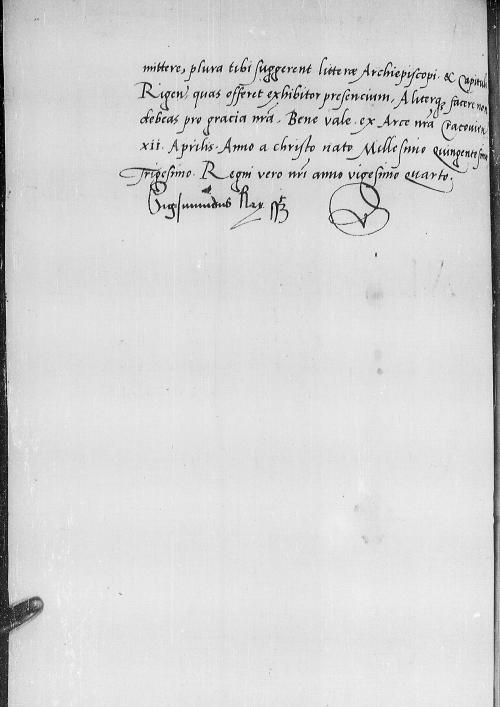 mittere, plura tibi suggerent litteræ Archiepiscopi. & Capituli
Rigen, quas offeret exhibitor presencium, Aliterq; facere non
debeas pro gracia nrã. Bene vale. ex Arce nrã Cracovien
xii. Aprilis. Anno a christo nato Millesimo Quingentesimo
Trigesimo. Regni vero nri anno vigesimo quarto.
Sigismundus Rex